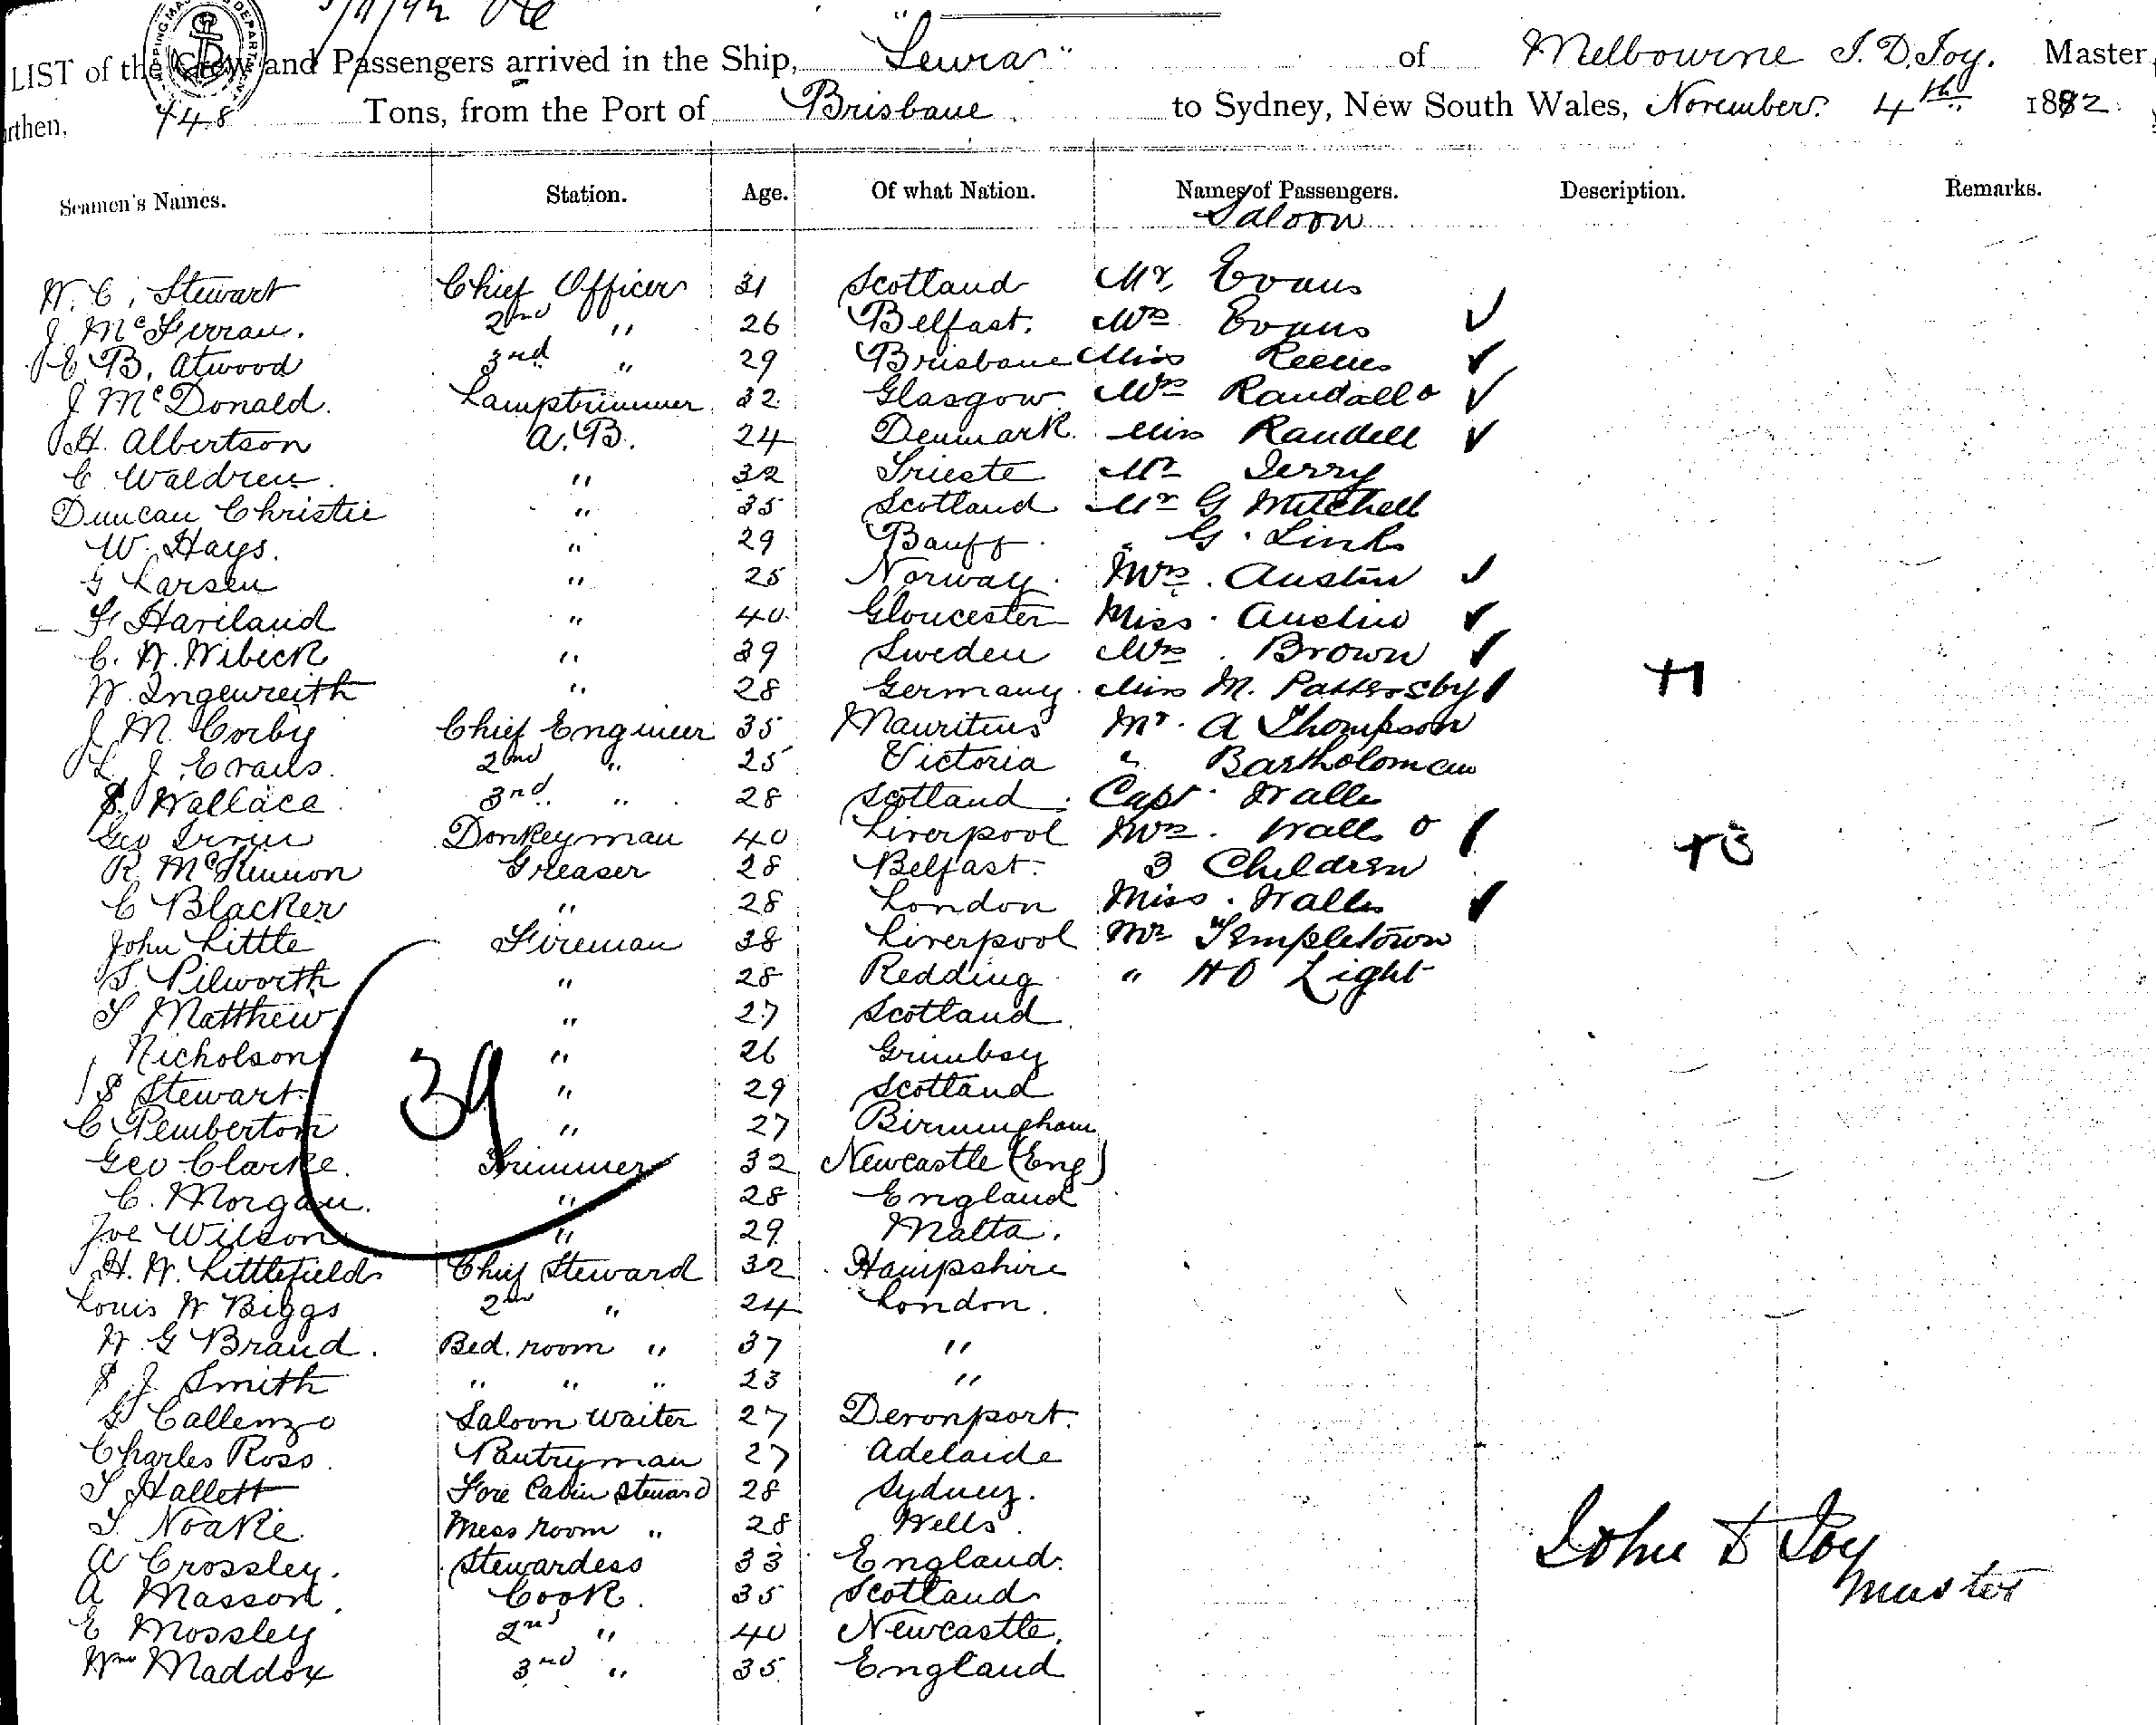 3/11/92
SHIPPING MASTER'S DEPARTMENT
LIST of the Crew and Passengers arrived in the Ship, "Leura" of Melbourne J. D. Joy. Master,
rthen, 748 Tons, from the Port of Brisbane to Sydney, New South Wales, November 4th 1892
Seamen's Names. Station. Age. Of what Nation. Names of Passengers. Description. Remarks.
Saloon
W. C. Stewart Chief Officer 31 Scotland Mr Evans
J. McFerran. 2nd " 26 Belfast. Mrs Evans ✓
E. B. Atwood 3rd " 29 Brisbane Miss Reeves ✓
J McDonald. Lamptrimmer 32 Glasgow Mrs Randall o ✓
H. Albertson A.B. 24 Denmark Miss Randell ✓
C Waldren. " 32 Trieste Mr Derry
Duncan Christie " 35 Scotland Mr G Mitchell
W. Hays. " 29 Banff " G. Link
G Larsen " 25 Norway. Mrs. Austin ✓
F Haviland " 40 Gloucester Miss. Austin ✓
C. W. Wibeck " 39 Sweden Mrs. Brown ✓
W. Ingewreith " 28 Germany. Miss M. Pattersby ✓
J M. Corby Chief Engineer 35 Mauritius Mr. A Thompson
L J. Evans. 2nd " 25 Victoria " Bartholomew
S. Wallace 3rd " 28 Scotland. Capt. Walls
Geo Irvin Donkeyman 40 Liverpool Mrs. Walls o
R. McKinnon Greaser 28 Belfast. 3 Children
C Blacker " 28 London Miss. Walls ✓
John Little Fireman 38 Liverpool Mr Templetown
S. Pilworth " 28 Redding " H O Light
S Matthew " 27 Scotland
Nicholson " 26 Grimbsy
39
S Stewart. " 29 Scotland
C Pemberton " 27 Birmingham
Geo Clarke. Trimmer 32 Newcastle (Eng)
C. Morgan. " 28 England
Joe Wilson " 29 Malta.
H. W. Littlefield Chief Steward 32 Hampshire
Louis W Biggs 2nd " 24 London.
W. G Brand. Bed. room " 37 "
S J. Smith " " " 23 "
G Callenzo Saloon Waiter 27 Devonport.
Charles Ross. Pantryman 27 Adelaide
S Hallett Fore Cabin Steward 28 Sydney.
S. Noake. Mess room " 28 Wells.
A Crossley. Stewardess 33 England.
John D Joy
A Masson. Cook. 35 Scotland
Master
E Mossley 2nd " 40 Newcastle.
Wm Maddox 3rd " 35 England